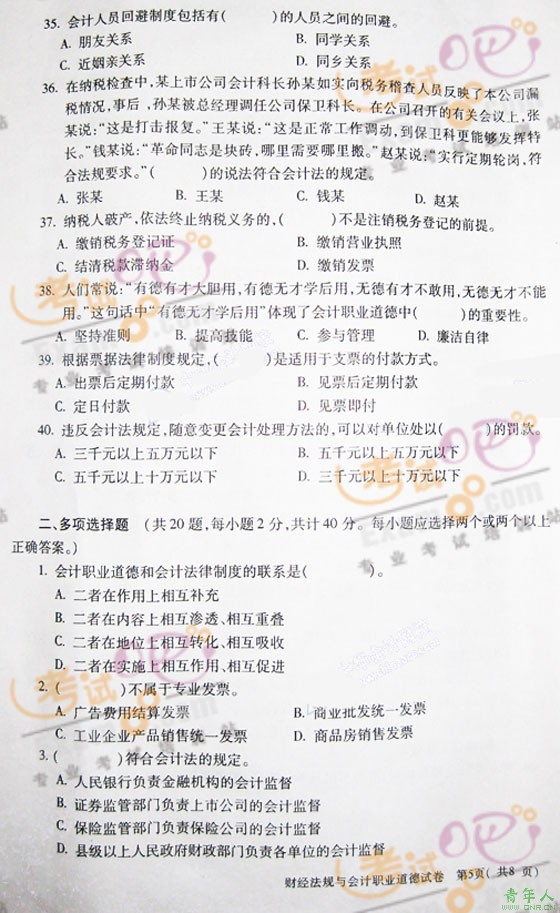 35. 会计人员回避制度包括有(　　)的人员之间的回避。
A. 朋友关系　B. 同学关系
C. 近姻亲关系　D. 同乡关系
36. 在纳税检查中,某上市公司会计科长孙某如实向税务稽查人员反映了本公司漏
税情况,事后,孙某被总经理调任公司保卫科长。在公司召开的有关会议上,张
某说:“这是打击报复。”王某说:“这是正常工作调动,到保卫科更能够发挥特
长。”钱某说:“革命同志是块砖,哪里需要哪里搬。”赵某说:“实行定期轮岗,符
合法规要求。”(　　)的说法符合会计法的规定。
A. 张某　B. 王某　C. 钱某　D. 赵某
37. 纳税人破产,依法终止纳税义务的,(　　)不是注销税务登记的前提。
A. 缴销税务登记证　B. 缴销营业执照
C. 结清税款滞纳金　D. 缴销发票
38. 人们常说:“有德有才大胆用,有德无才学后用,无德有才不敢用,无德无才不能
用。”这句话中“有德无才学后用”体现了会计职业道德中(　　)的重要性。
A. 坚持准则　B. 提高技能　C. 参与管理　D. 廉洁自律
39. 根据票据法律制度规定,(　　)是适用于支票的付款方式。
A. 出票后定期付款　B. 见票后定期付款
C. 定日付款　D. 见票即付
40. 违反会计法规定,随意变更会计处理方法的,可以对单位处以(　　)的罚款。
A. 三千元以上五万元以下　B. 五千元以上五万元以下
C. 五千元以上十万元以下　D. 三千元以上十万元以下
二、多项选择题　(共20题,每小题2分,共计40分。每小题应选择两个或两个以上
正确答案。)
1. 会计职业道德和会计法律制度的联系是(　　)。
A. 二者在作用上相互补充
B. 二者在内容上相互渗透、相互重叠
C. 二者在地位上相互转化、相互吸收
D. 二者在实施上相互作用、相互促进
2. (　　)不属于专业发票。
A. 广告费用结算发票　B. 商业批发统一发票
C. 工业企业产品销售统一发票　D. 商品房销售发票
3. (　　)符合会计法的规定。
A. 人民银行负责金融机构的会计监督
B. 证券监管部门负责上市公司的会计监督
C. 保险监管部门负责保险公司的会计监督
D. 县级以上人民政府财政部门负责各单位的会计监督
财经法规与会计职业道德试卷　第5页(共8页)
青年人
WWW.QNR.CN